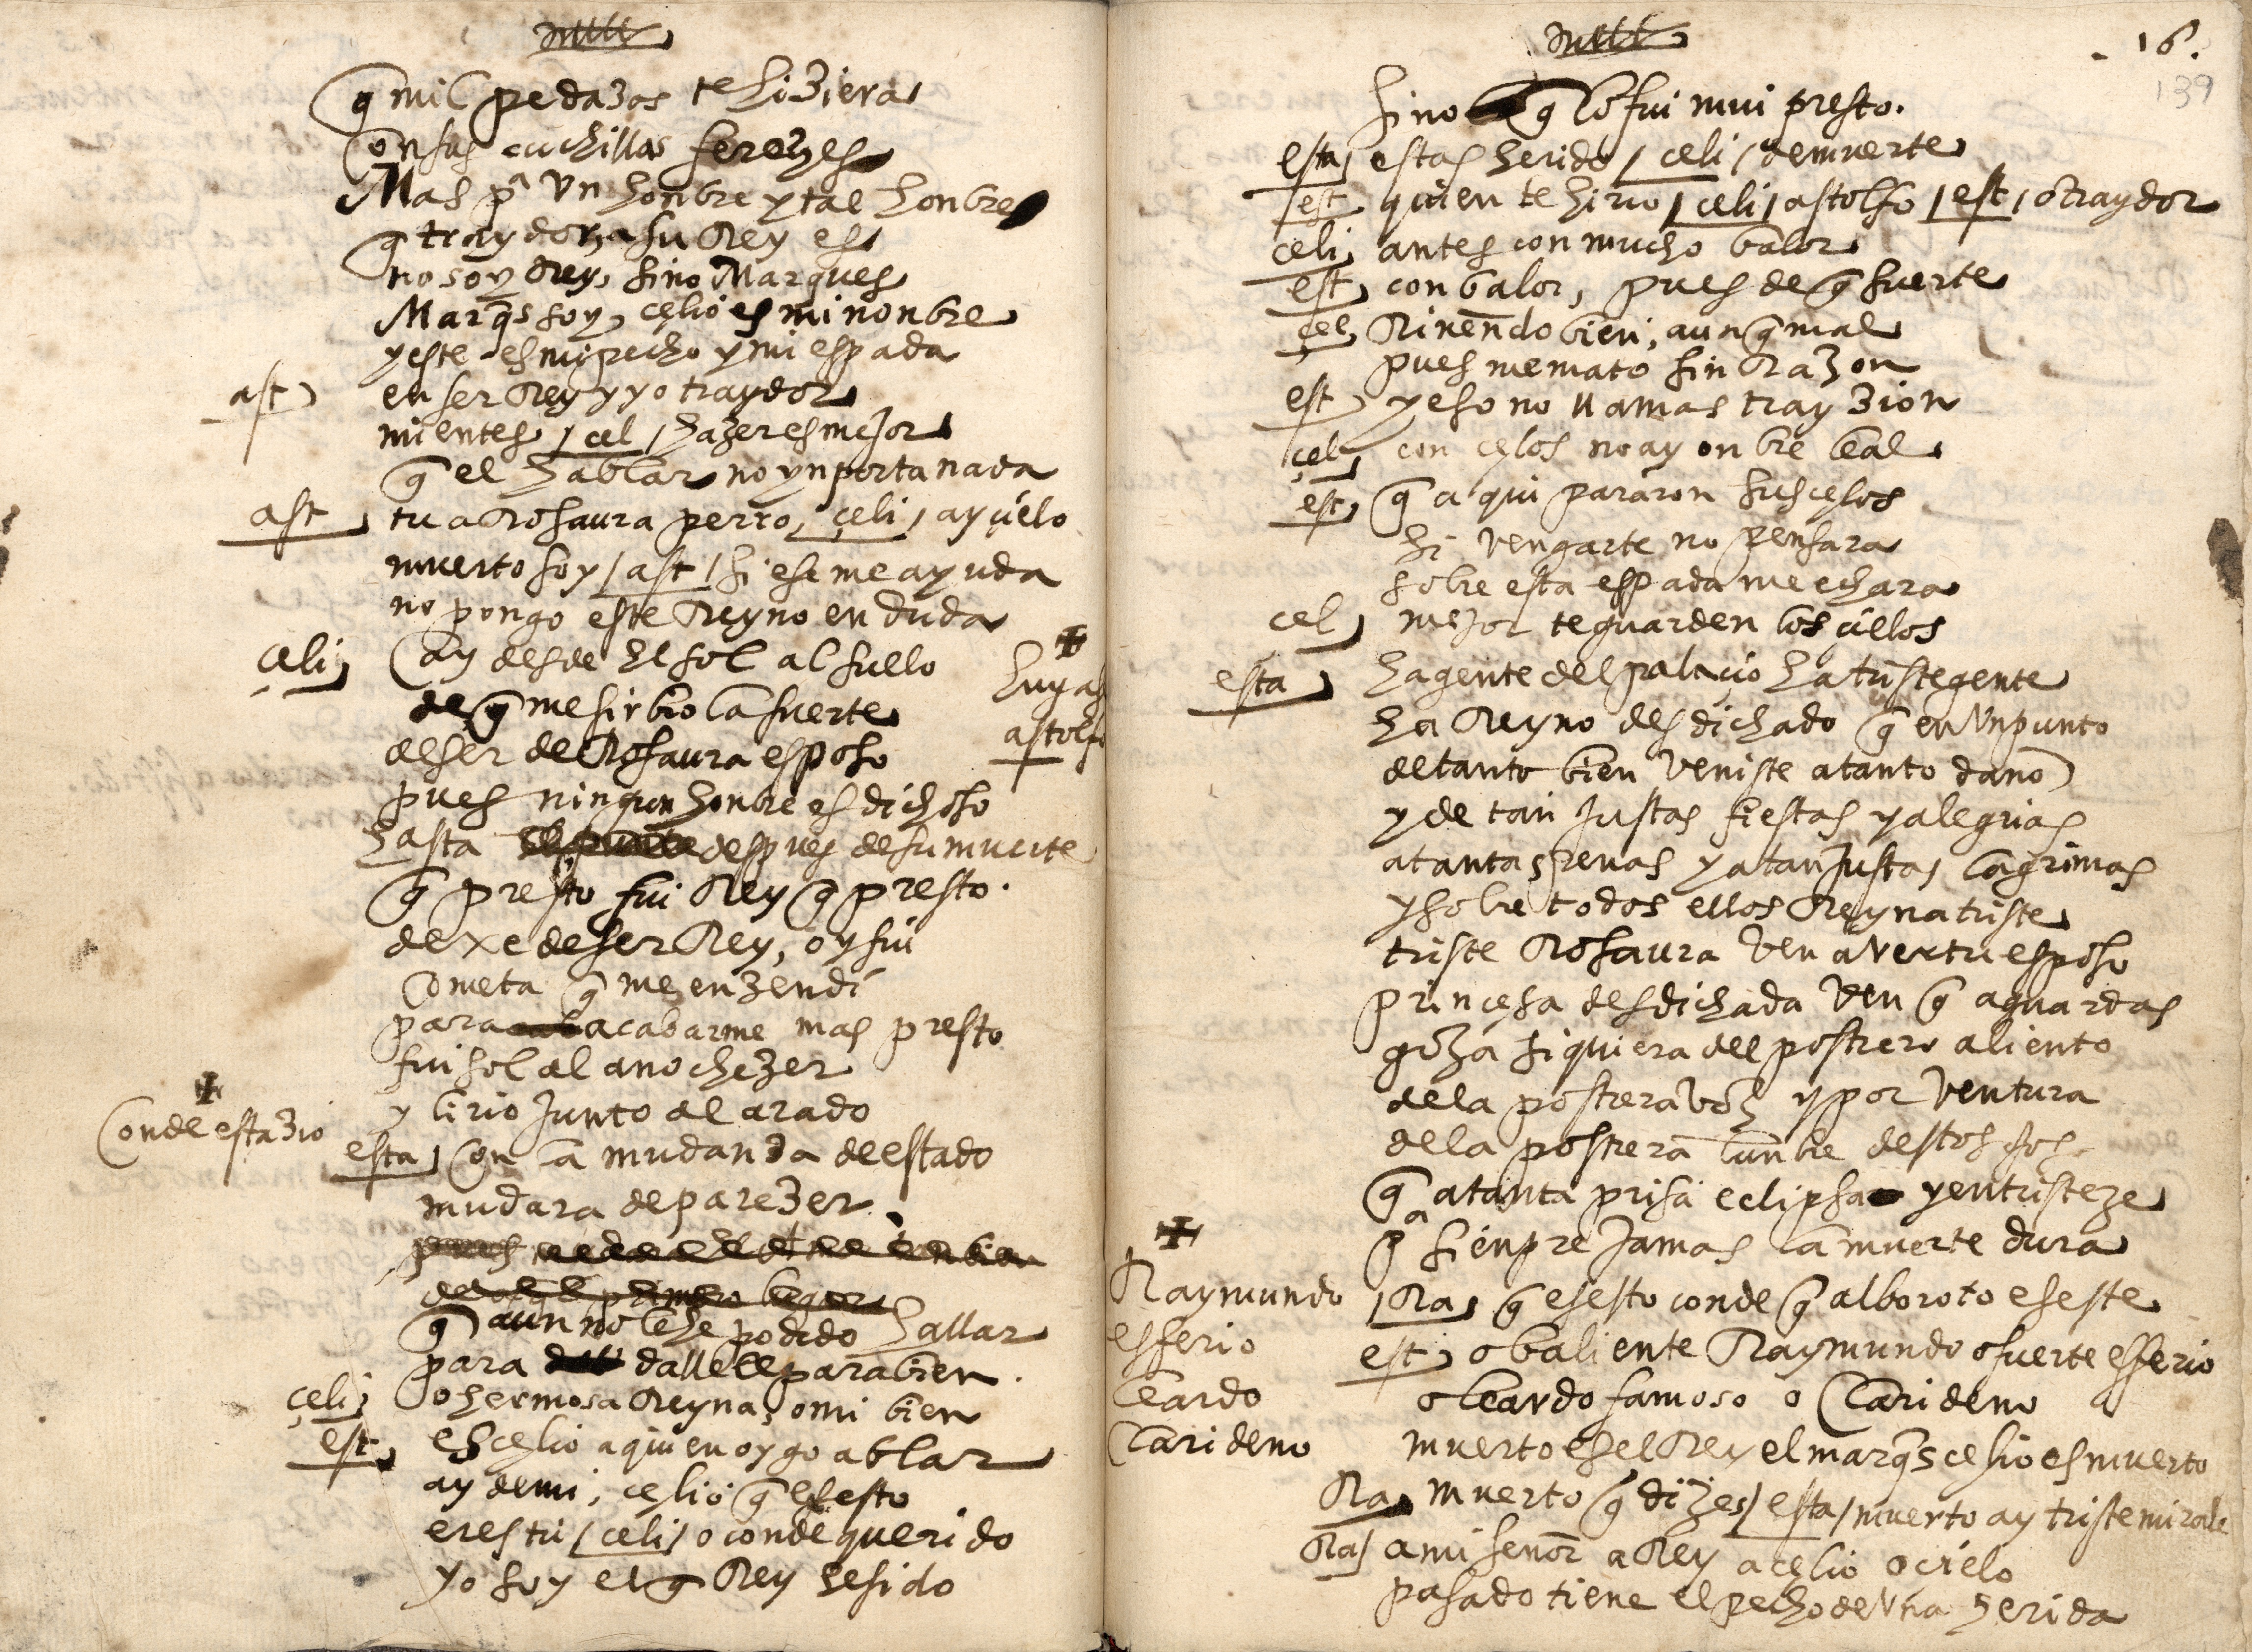 q̃ mil pedazos te hiziera
con sus cuchillas ferozes
Mas pª Vn honbre y tal honbre
q̃ traydor a su Rey es
no soy Rey, sino Marques
Marq̃s soy, çelio es mi nonbre
y este es mi pecho y mi espada
ast en ser Rey y yo traydor
mientes / cel / hazer es mejor
q̃ el hablar no ynporta nada
ast tu a Rosaura perro, çeli, ay çielo
muerto soy / ast / si ese me ayuda
no pongo este Reyno en duda
çeli ay desde el sol al suelo
huya
astolfo
de q̃ me sirbio la suerte
de ser de Rosaura esposo
pues ningun honbre es dichoso
hasta despues de su muerte
q̃ presto fui Rey q̃ presto.
dexe de ser Rey, oy fui
cometa q̃ me enzendi
para acabarme mas presto
fui sol al anochezer
y lirio junto al arado
Conde estazio
esta con la mudanza de estado
mudara de parezer
q̃ aun no le he podido hallar
para dalle el parabien.
çeli o hermosa Reyna, o mi bien
est es çelio a quien oygo ablar
ay de mi, çelio q̃ es esto
eres tu / celi / o conde querido
yo soy el q̃ Rey he sido
16.
139
sino q̃ lo fui mui presto.
esta estas herido / celi / de muerte
est quien te hirio / celi / astolfo / est / o traydor
celi antes con mucho balor
est con balor, pues de q̃ suerte
çel Rinendo bien, aunq̃ mal
pues me mato sin Razon
est y eso no llamas trayzion
çel con çelos no ay onbre leal
est q̃ aqui pararon sus çelos
si vengarte no pensara
sobre esta espada me echara
cel mejor te guarden los çielos
esta ha gente del palaçio ha triste gente
ha Reyno desdichado q̃ en Vn punto
de tanto bien veniste a tanto dano
y de tan justas fiestas y alegrias
a tantas penas y a tan justas lagrimas
y sobre todos ellos Reyna triste
triste Rosaura ven a ver tu esposo
princesa desdichada ven q̃ aguardas
goza siquiera del postrero aliento
de la postrera voz y por ventura
de la postrera lunbre destos ojos
q̃ a tanta prisa eclipsa y entristeze
pª sienpre jamas la muerte dura
Raymundo
esferio
leardo
Clarideno
Ra q̃ es esto conde q̃ alboroto es este
est o baliente Raymundo o fuerte esferio
o leardo famoso o Clarideno
muerto es el Rey el marq̃s celio es muerto
Ra muerto q̃ dizes / esta / muerto ay triste mirale
Ra a mi senor a Rey a çelio o cielo
pasado tiene el pecho de Vna herida